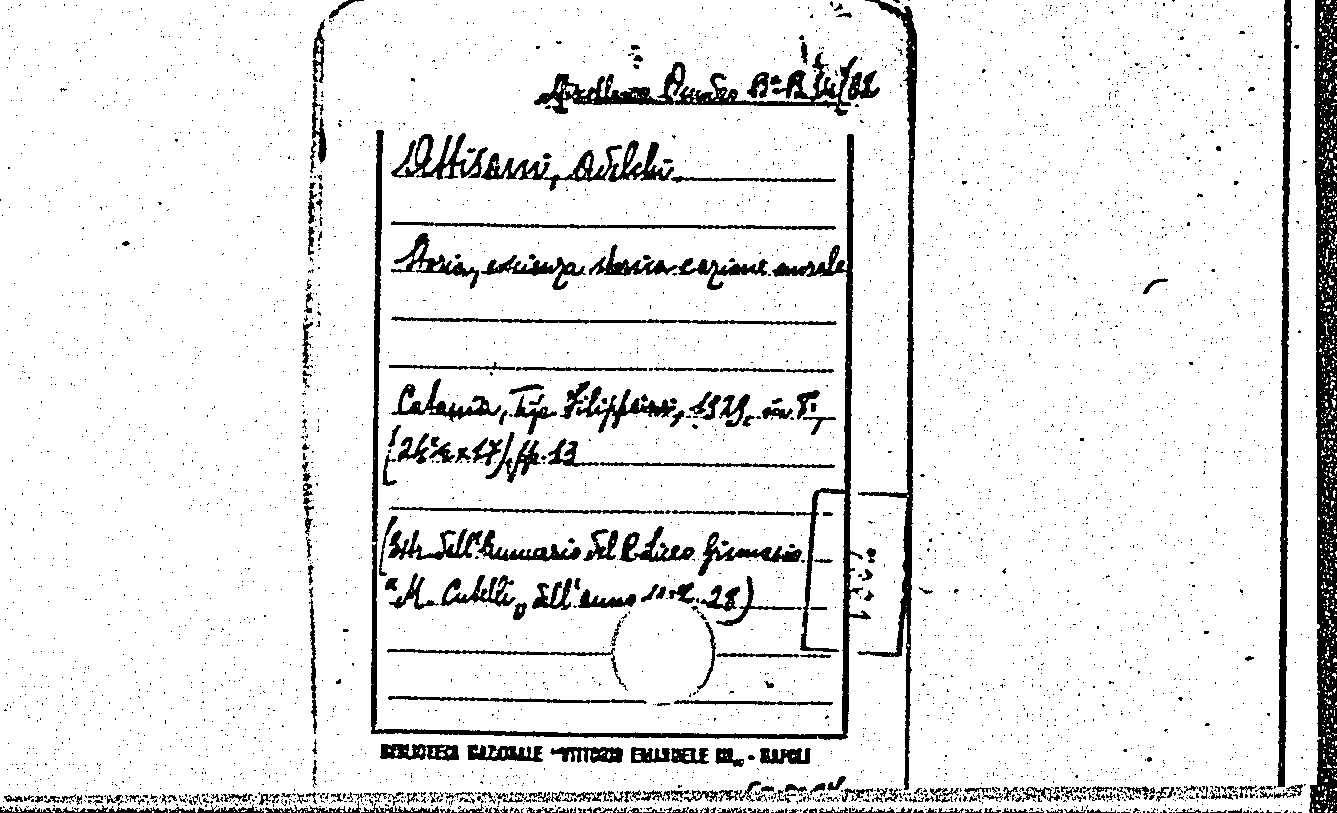 Miscellanea B.ª B 14/82
Attisani, Adelchi
Storia, coscienza storica e azione morale
Catania, Tip. Filippini, 1929, in 8º,
pp. 13
(Estr. dall'Annuario del R. Liceo Ginnasio
"M. Cutelli" dell'anno 28)
BIBLIOTECA NAZIONALE "VITTORIO EMANUELE III" - NAPOLI